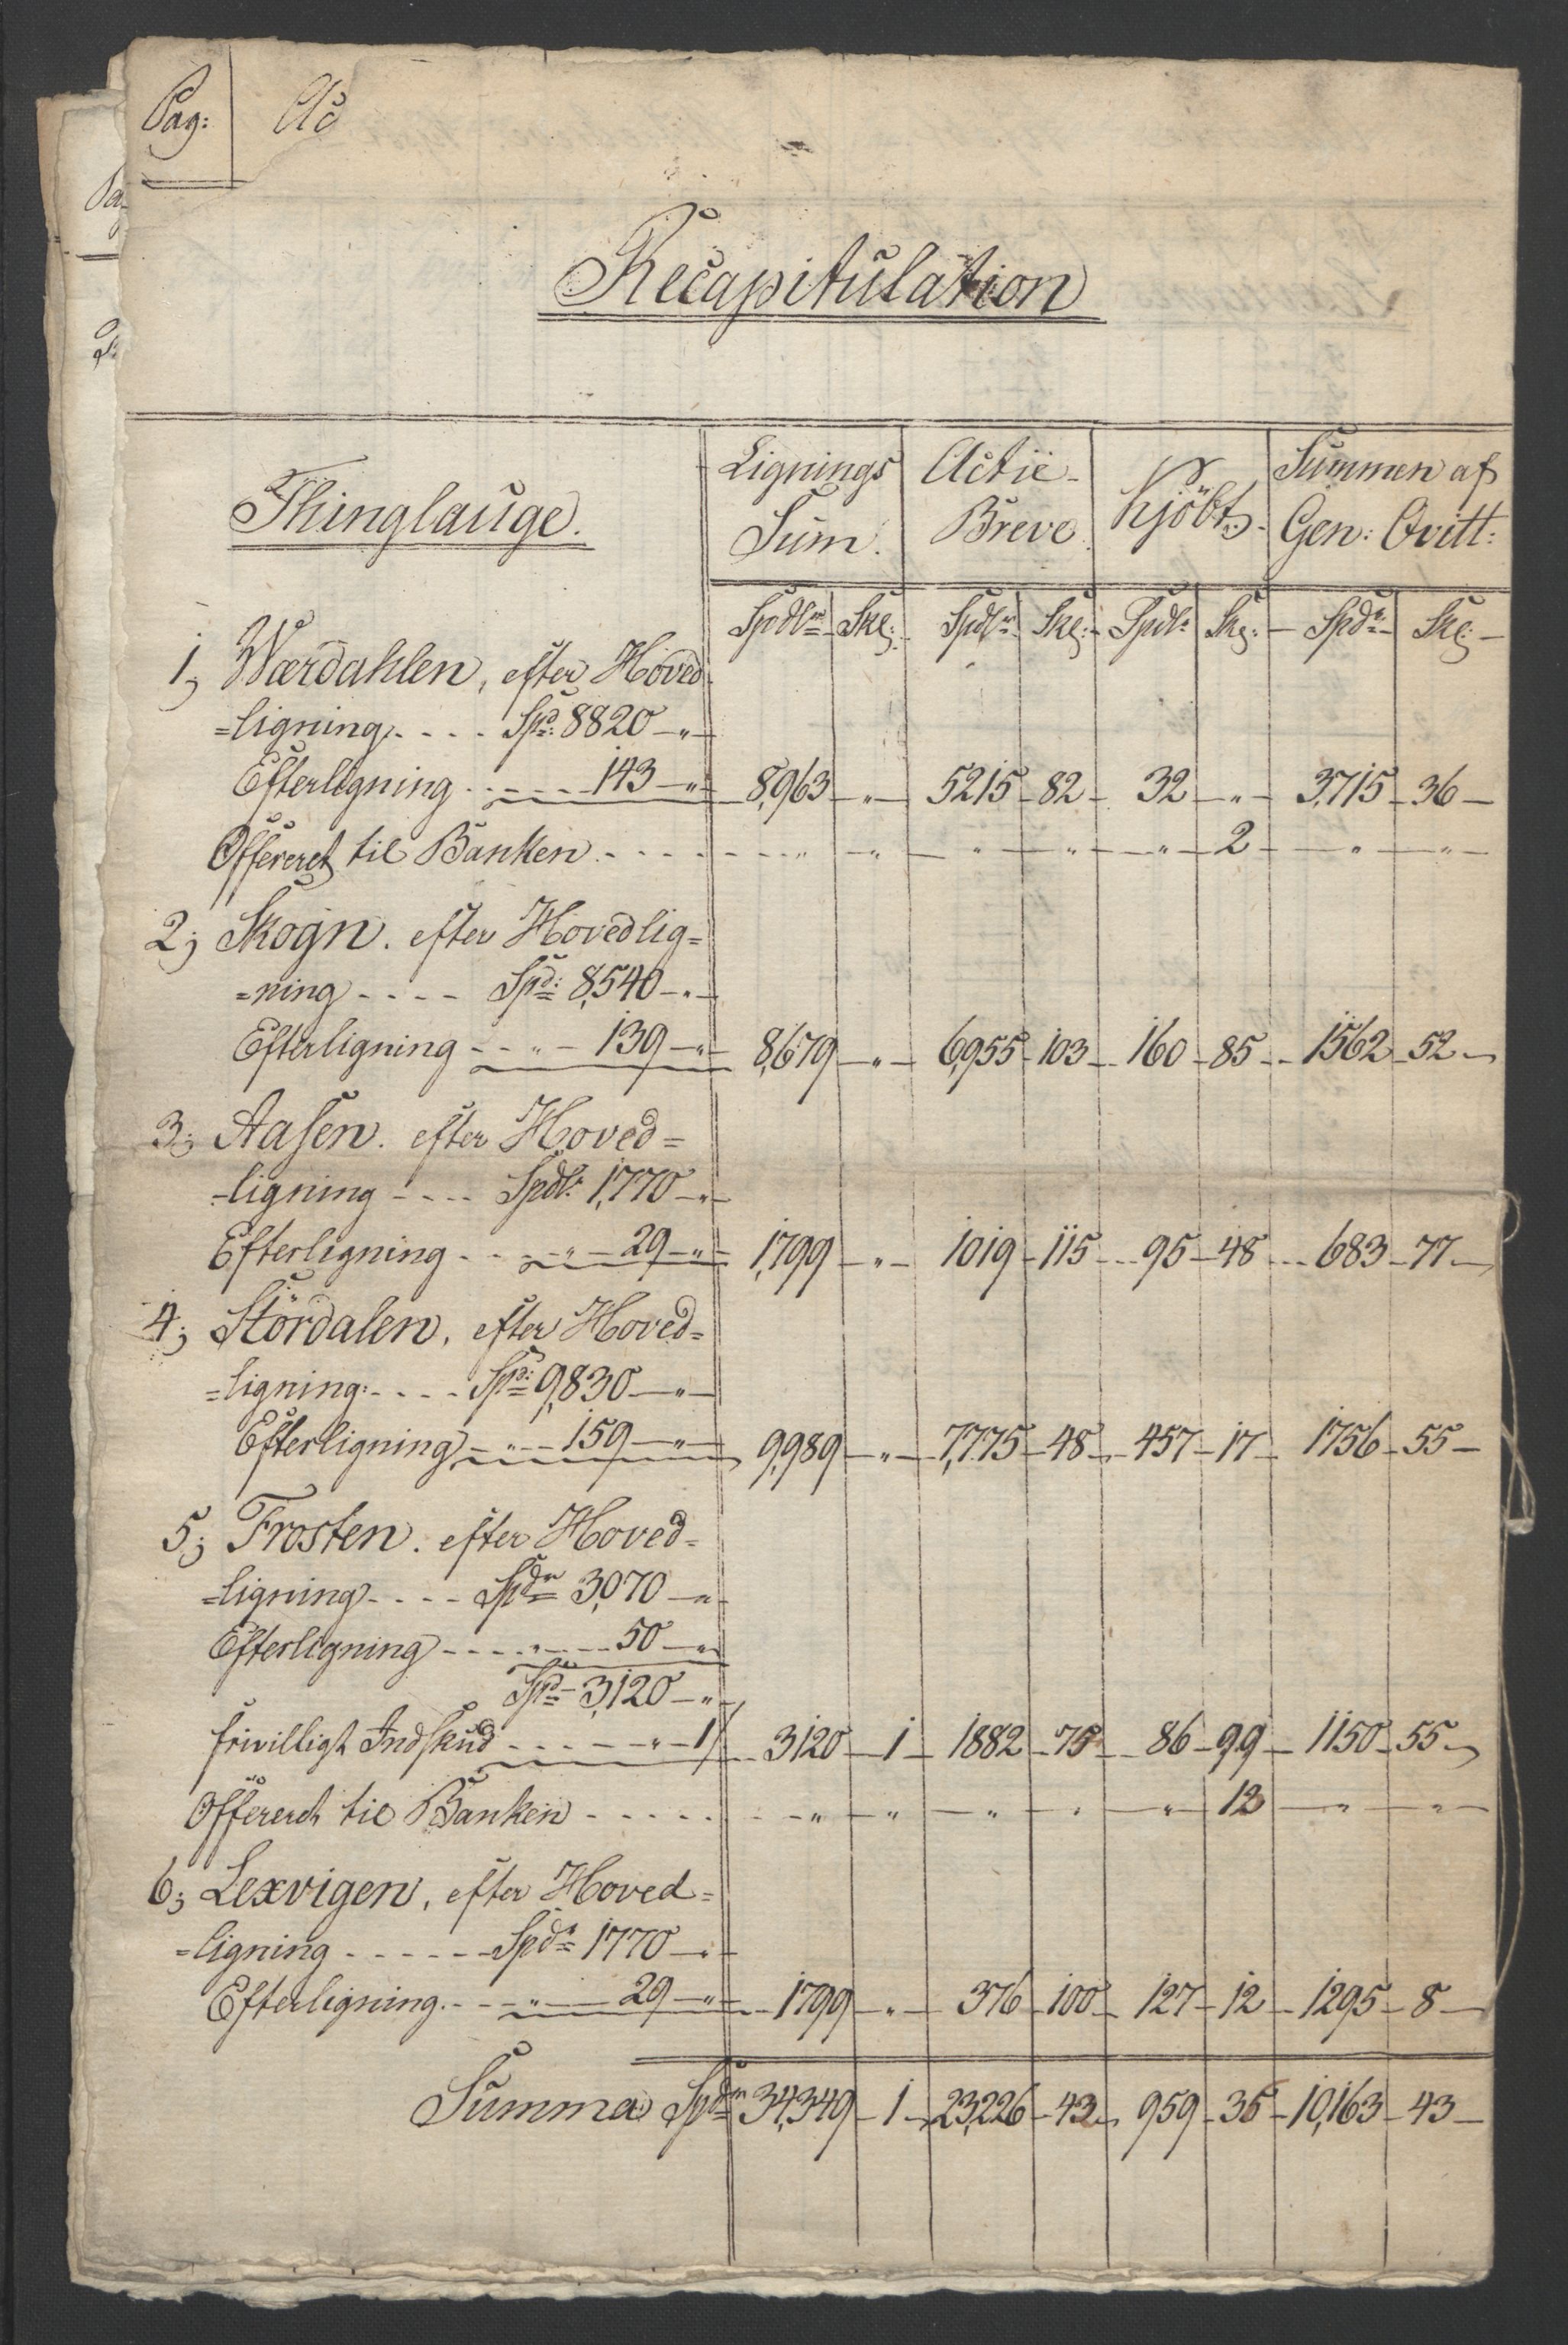 Pag: Ad
Recapitulation
Thinglauge. Lignings Sum. Actie-Breve. Kjöbt. Summen af Gen: Qvitt:
Spdlr Skl: Spdlr Skl: Spdlr Sk: Spdr Skl:
1; Wærdahlen, efter Hoved
=ligning. . . . Spd: 8820 — " —
Efterligning . . . . 143 — " — 8,963 — " — 5215 — 82 — 32 — " — 3,715 — 36 —
Offereret til Banken . . . . " — " — " — " — " — 2 — " — " —
2; Skogn. efter Hovedlig=
=ning . . . . Spd: 8,540 — " —
Efterligning . . " — 139 — " — 8,679 — " — 6,955 — 103 — 160 — 85 — 1562 — 52 —
3; Aasen. efter Hoved=
=ligning . . . . Spdl: 1,770 — " —
Efterligning . . . " — 29 — " — 1,799 — " — 1019 — 115 — 95 — 48 — 683 — 77 —
4; Stördalen, efter Hoved=
=ligning: . . . . Spd: 9,830 — " —
Efterligning — " — 159 — " — 9,989 — " — 7,775 — 48 — 457 — 17 — 1756 — 55 —
5; Frosten. efter Hoved=
=ligning . . . . Spdr 3,070 — " —
Efterligning . . . . " — 50 — " —
Spd 3,120 — " —
frivilligt Indskud . . . . " — 1 3120 — 1 — 1882 — 75 — 86 — 99 — 1150 — 55 —
Offereret til Banken . . . . . " — " — " — " — " — 12 — " — " —
6; Lexvigen, efter Hoved=
=ligning . . . . . Spdr 1770 — " —
Efterligning . . . " — 29 — " — 1799 — " — 376 — 100 — 127 — 12 — 1295 — 8 —
Summa Spdr 34,349 — 1 — 23,226 — 43 — 959 — 35 — 10,163 — 43 —